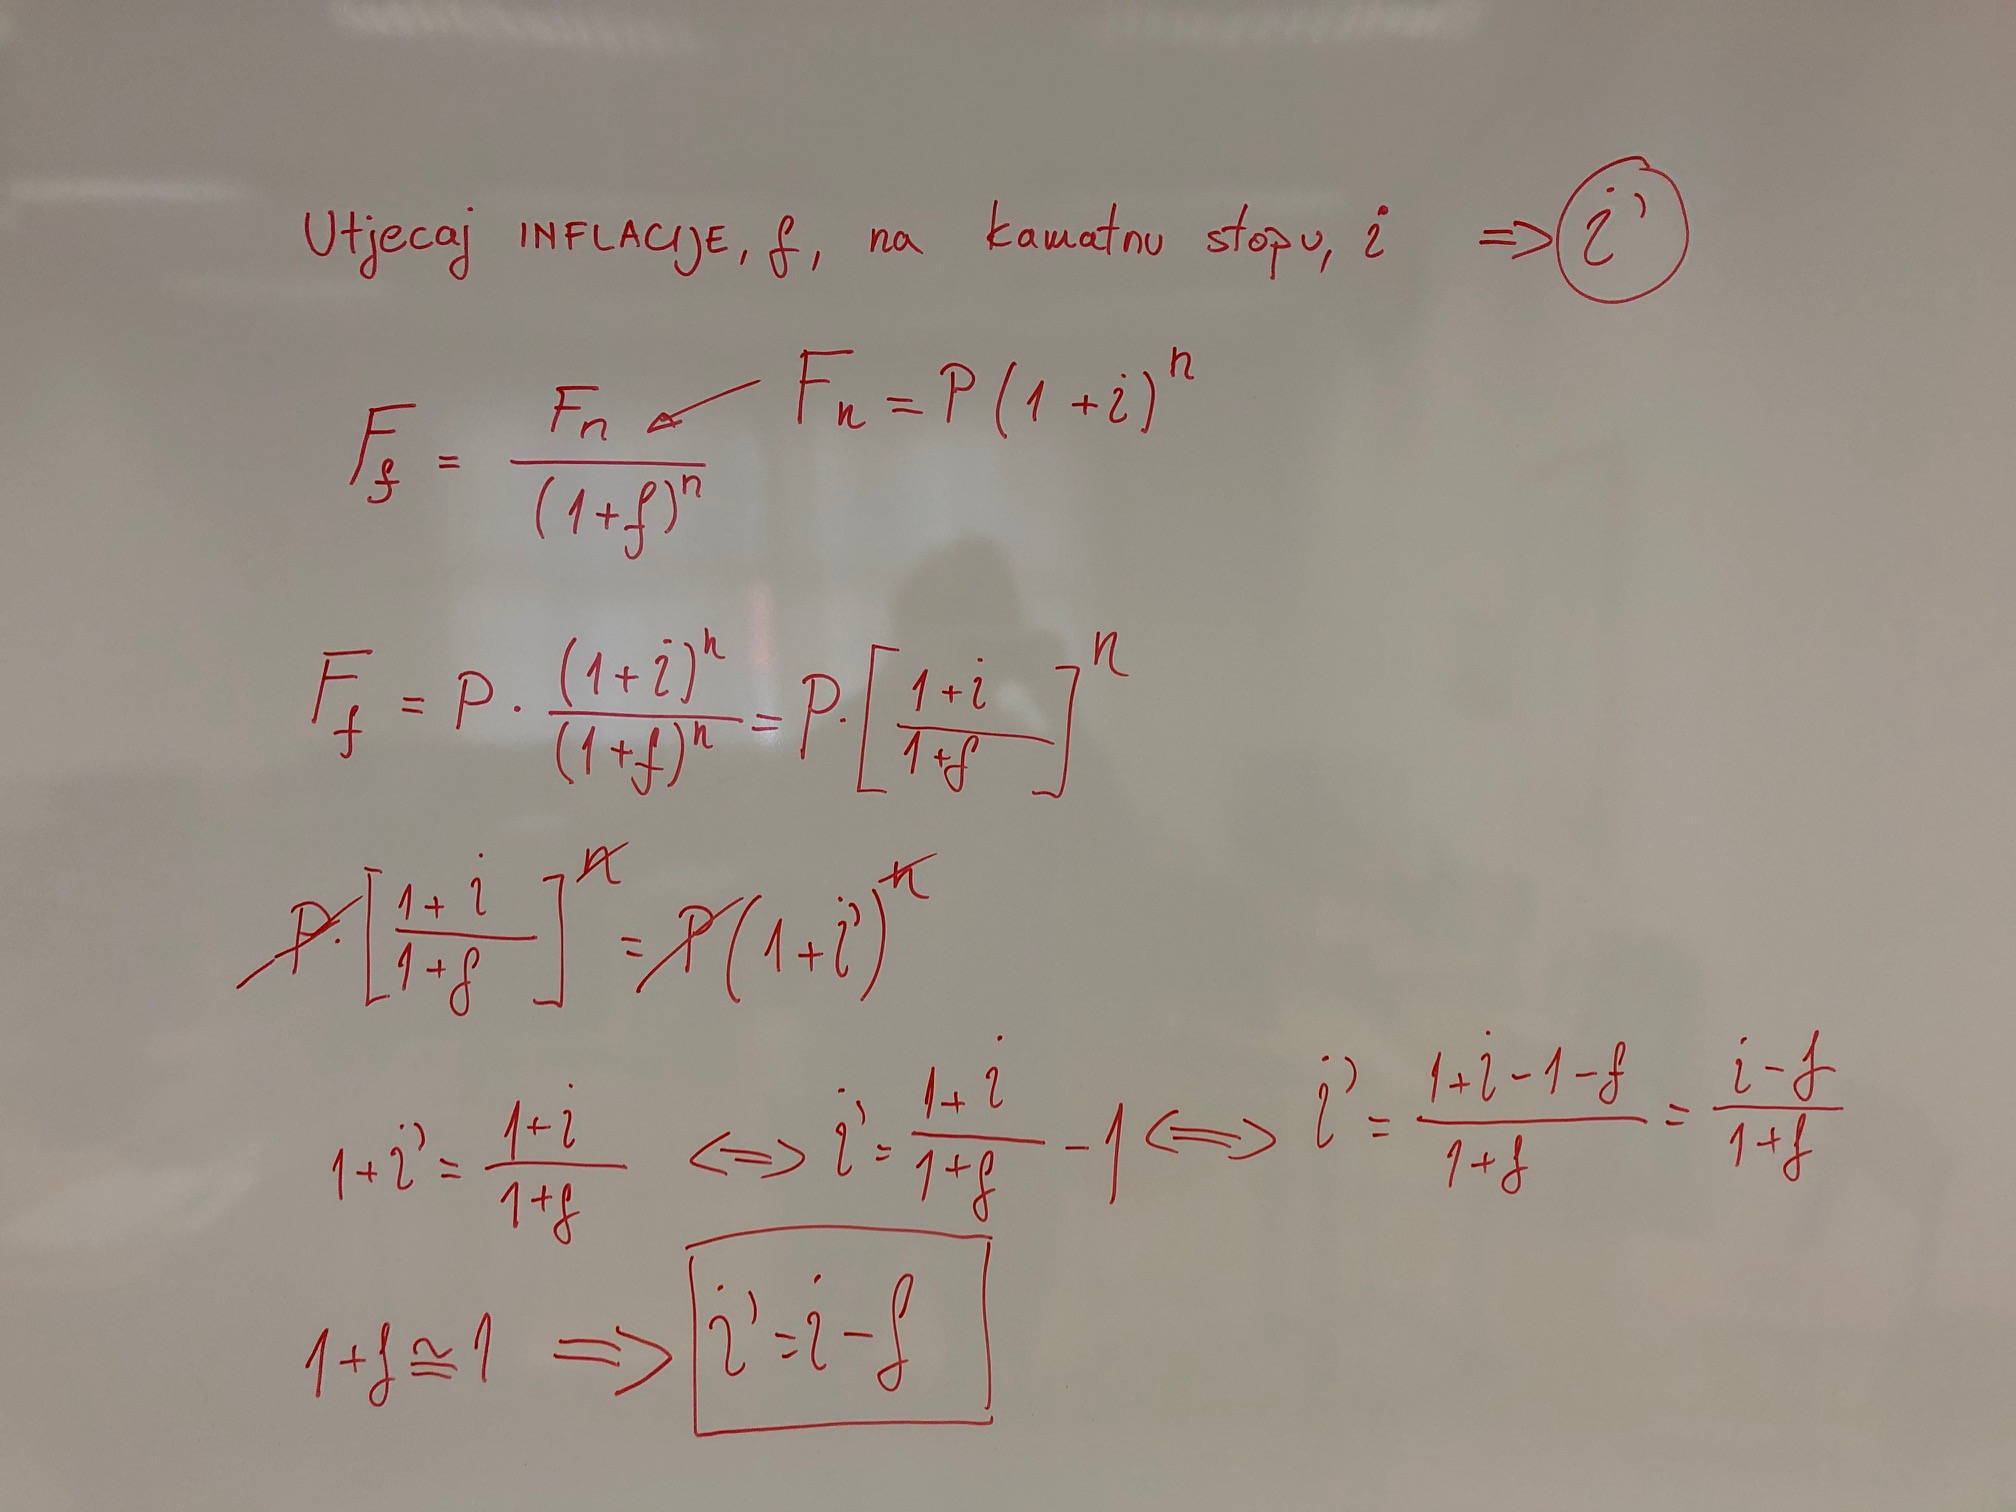 Utjecaj INFLACIJE, f, na kamatnu stopu, i => i'
F_f = F_n / (1+f)^n ← F_n = P(1+i)^n
F_f = P · (1+i)^n / (1+f)^n = P · [(1+i) / (1+f)]^n
P · [(1+i) / (1+f)]^n = P(1+i')^n
1+i' = (1+i) / (1+f) <=> i' = (1+i) / (1+f) - 1 <=> i' = (1+i-1-f) / (1+f) = (i-f) / (1+f)
1+f ≅ 1 => i' = i - f